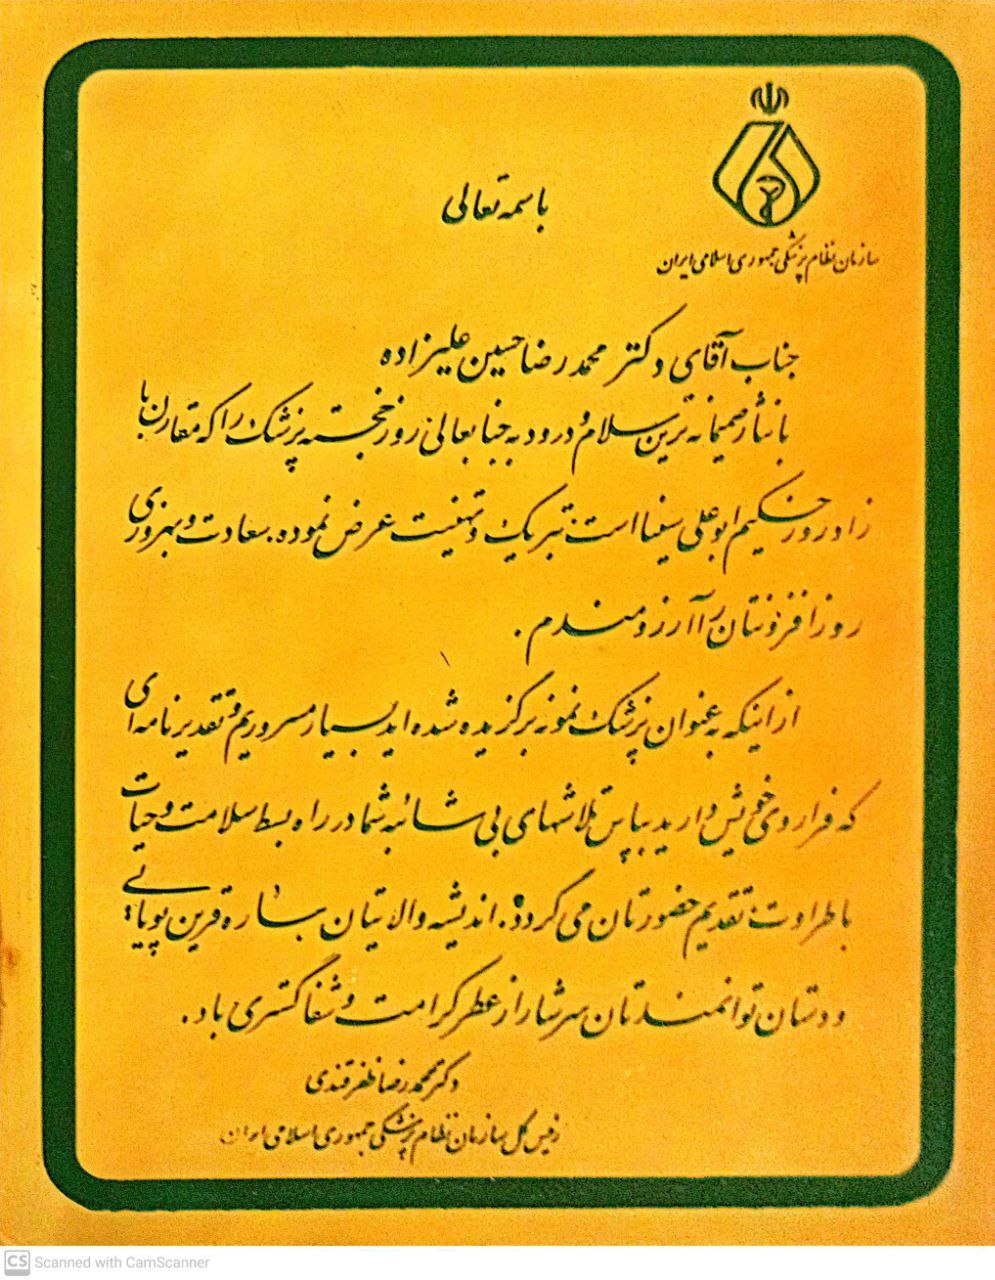 باسمه تعالی
سازمان نظام پزشکی جمهوری اسلامی ایران
جناب آقای دکتر محمد رضا حسین علیزاده
با نثار صمیمانه ترین سلام و درود به جنابعالی روز خجسته پزشک را که مقارن با
زادروز حکیم ابوعلی سینا است تبریک و تهنیت عرض نموده، سعادت و بهروزی
روزافزونتان را آرزومندم .
از اینکه به عنوان پزشک نمونه برگزیده شده اید بسیار مسروریم و تقدیرنامه ای
که فراروی خویش دارید بپاس تلاشهای بی شائبه شما در راه بسط سلامت و حیات
با طراوت تقدیم حضورتان می گردد. اندیشه والایتان هماره قرین پویایی
و دستان توانمندتان سرشار از عطر کرامت و شفاگستری باد .
دکتر محمدرضا ظفرقندی
رئیس کل سازمان نظام پزشکی جمهوری اسلامی ایران
CS Scanned with CamScanner